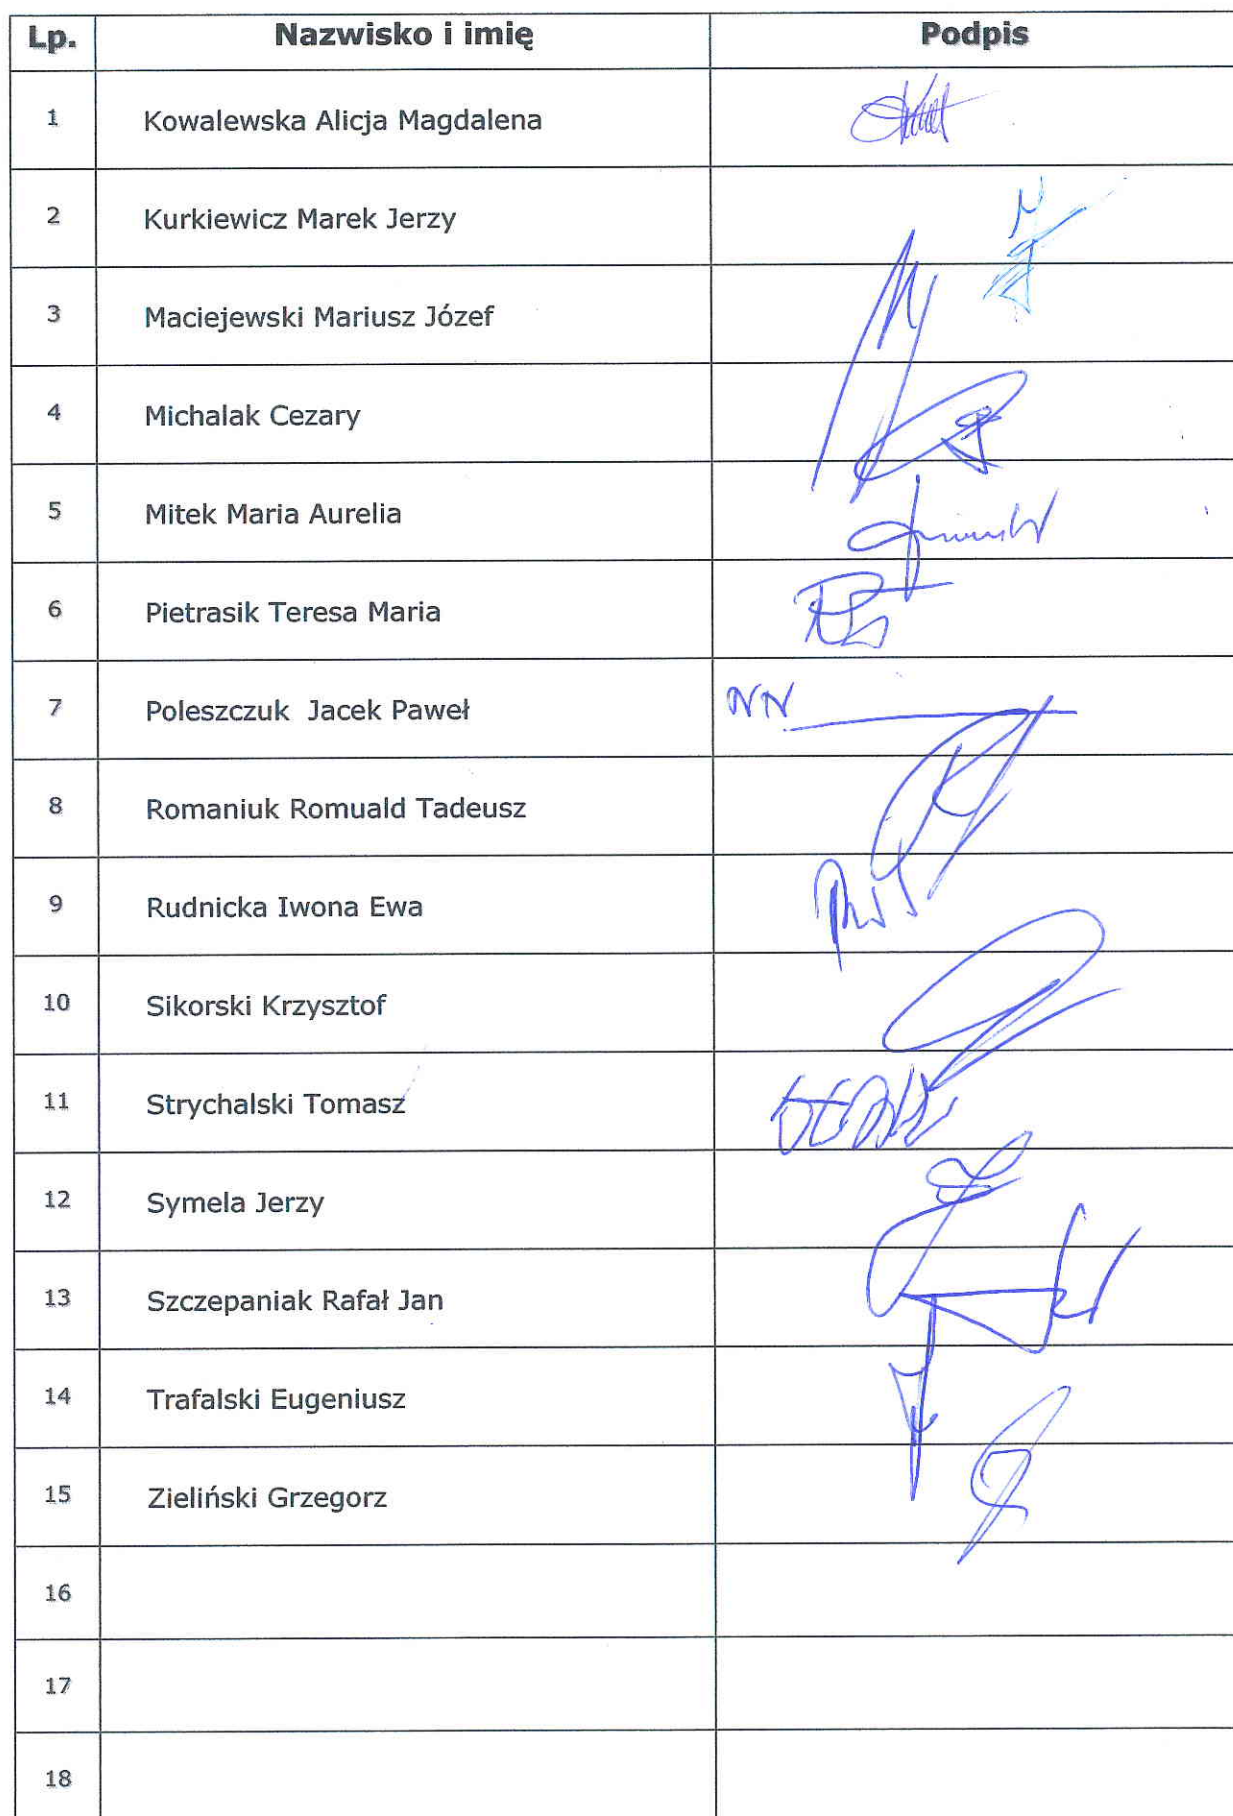 Lp. Nazwisko i imię Podpis
1 Kowalewska Alicja Magdalena
2 Kurkiewicz Marek Jerzy
3 Maciejewski Mariusz Józef
4 Michalak Cezary
5 Mitek Maria Aurelia
6 Pietrasik Teresa Maria
7 Poleszczuk Jacek Paweł NN
8 Romaniuk Romuald Tadeusz
9 Rudnicka Iwona Ewa
10 Sikorski Krzysztof
11 Strychalski Tomasz
12 Symela Jerzy
13 Szczepaniak Rafał Jan
14 Trafalski Eugeniusz
15 Zieliński Grzegorz
16
17
18